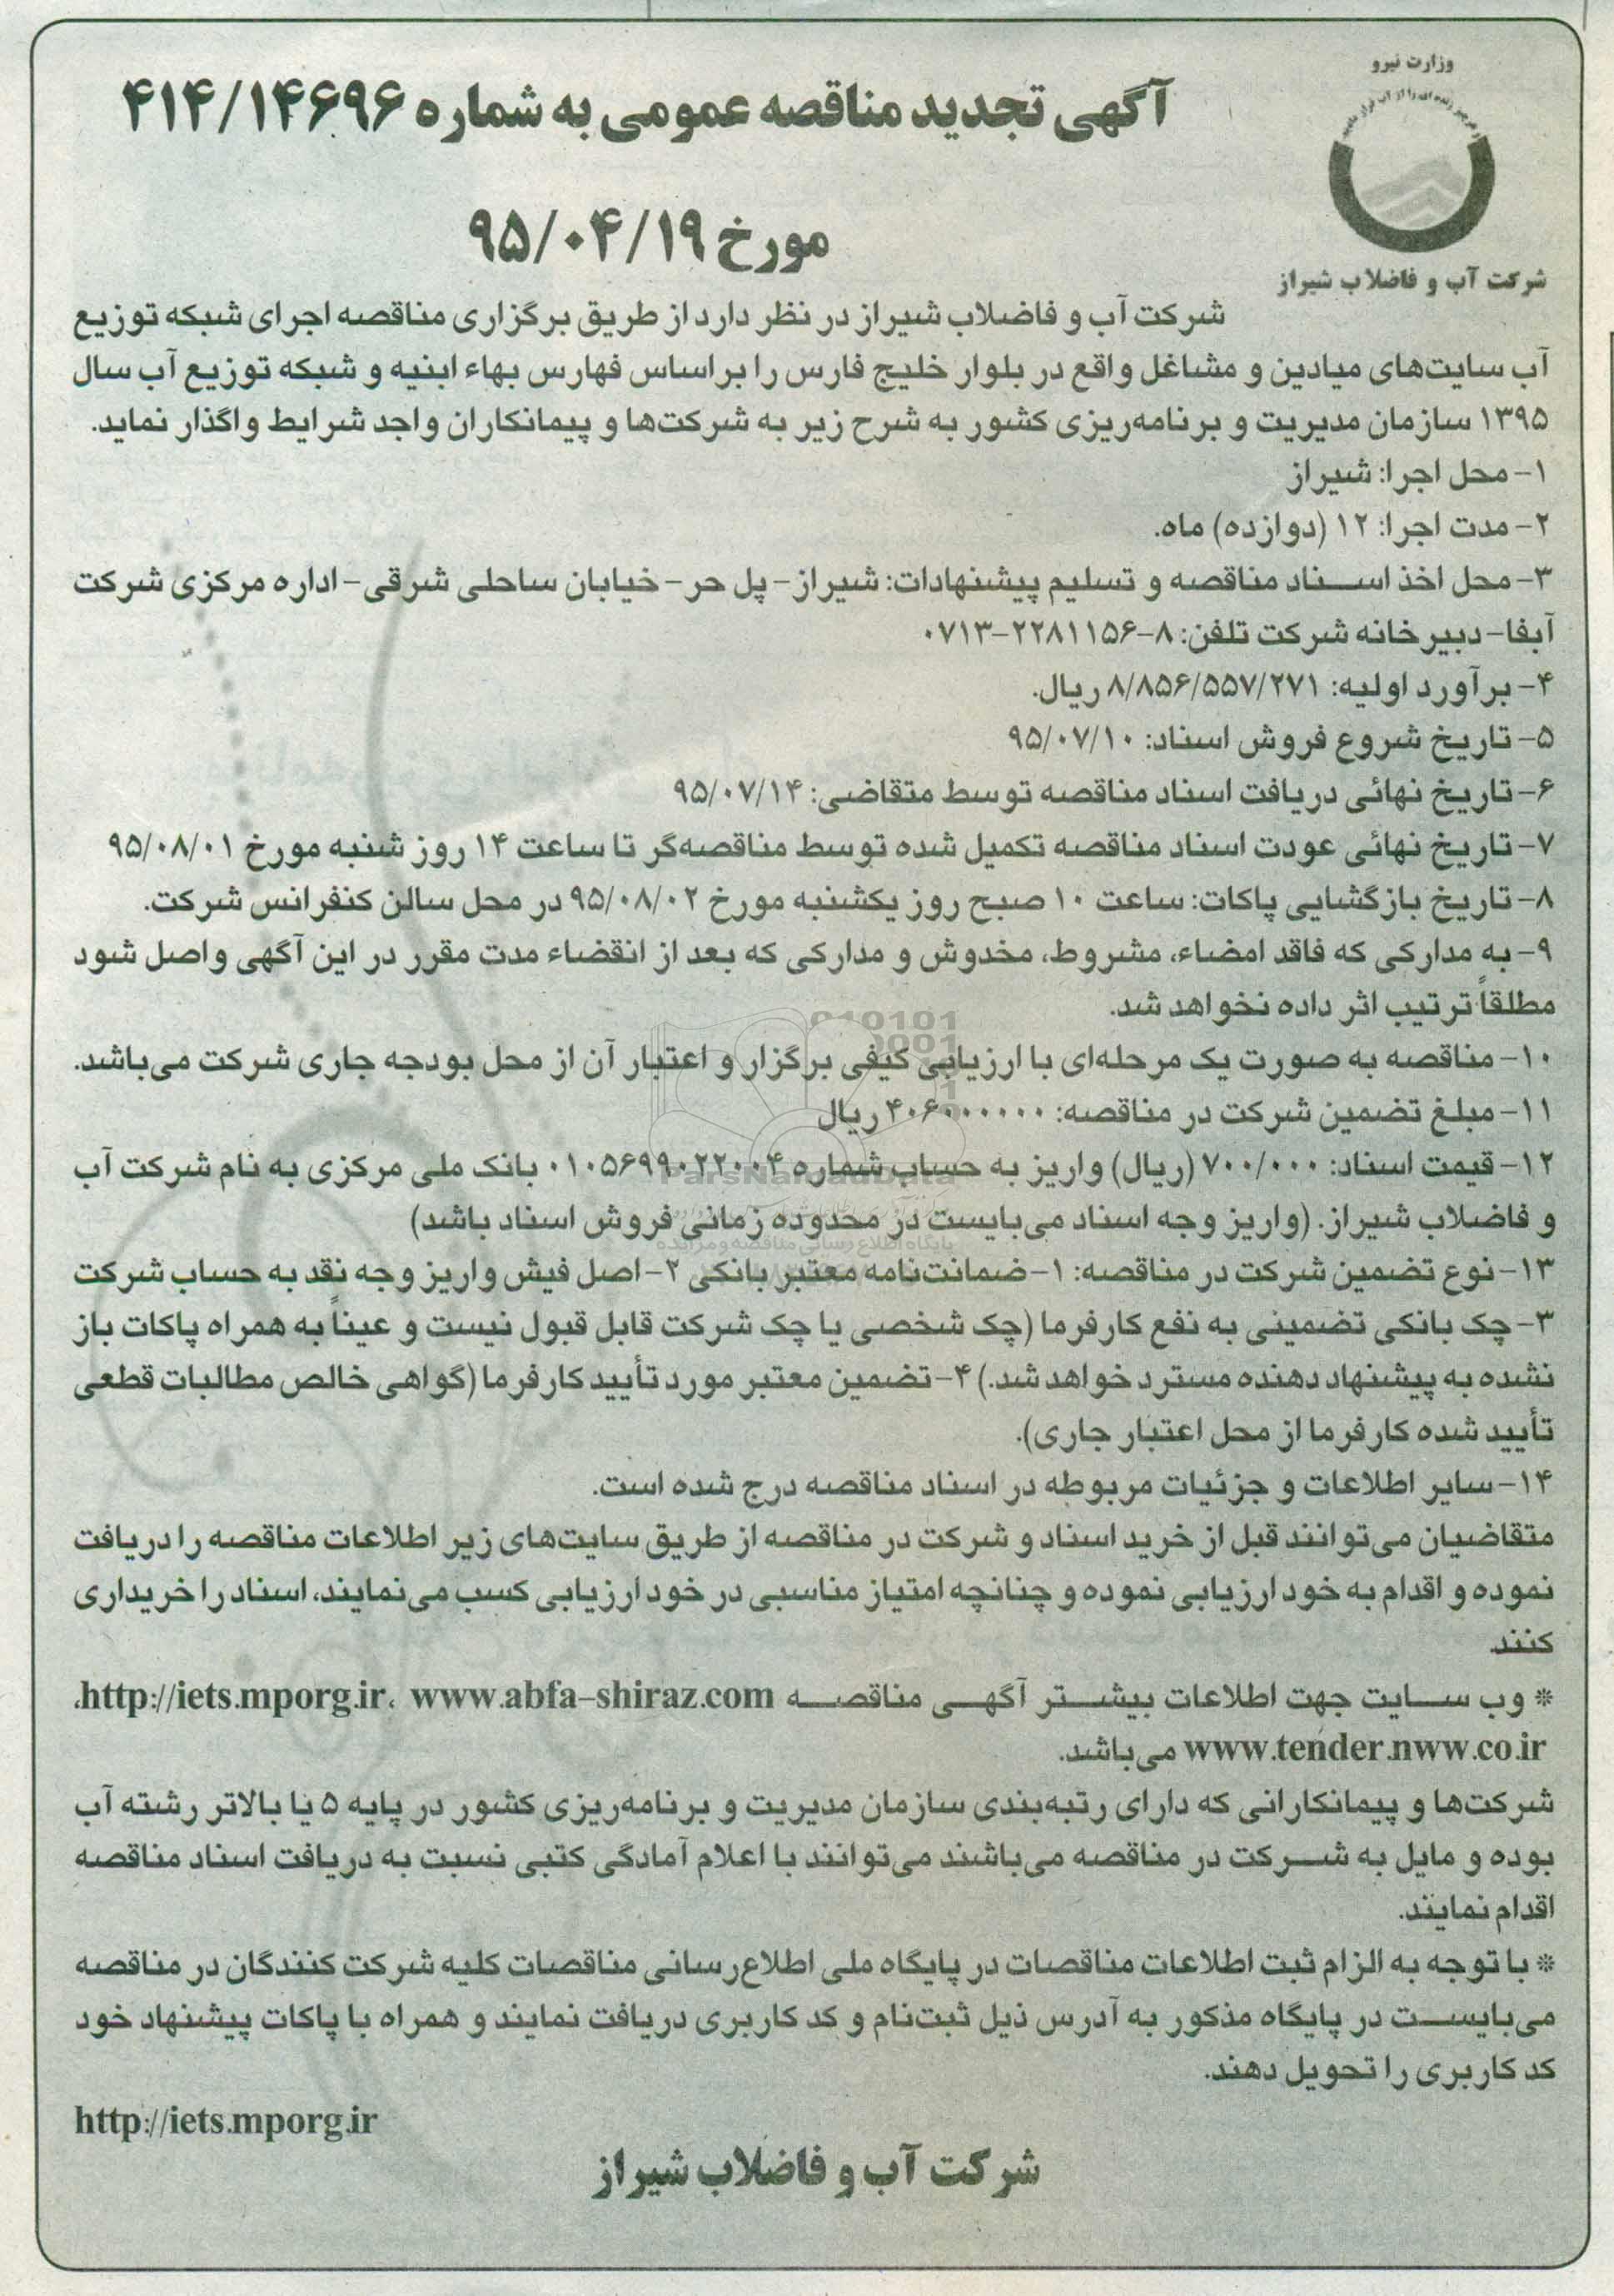 وزارت نیرو
شرکت آب و فاضلاب شیراز
آگهی تجدید مناقصه عمومی به شماره ۴۱۴/۱۴۶۹۶
مورخ ۹۵/۰۴/۱۹
شرکت آب و فاضلاب شیراز در نظر دارد از طریق برگزاری مناقصه اجرای شبکه توزیع
آب سایت‌های میادین و مشاغل واقع در بلوار خلیج فارس را براساس فهارس بهاء ابنیه و شبکه توزیع آب سال
۱۳۹۵ سازمان مدیریت و برنامه‌ریزی کشور به شرح زیر به شرکت‌ها و پیمانکاران واجد شرایط واگذار نماید.
۱- محل اجرا: شیراز
۲- مدت اجرا: ۱۲ (دوازده) ماه.
۳- محل اخذ اسناد مناقصه و تسلیم پیشنهادات: شیراز- پل حر- خیابان ساحلی شرقی- اداره مرکزی شرکت
آبفا- دبیرخانه شرکت تلفن: ۸-۲۲۸۱۱۵۶-۰۷۱۳
۴- برآورد اولیه: ۸/۸۵۶/۵۵۷/۲۷۱ ریال.
۵- تاریخ شروع فروش اسناد: ۹۵/۰۷/۱۰
۶- تاریخ نهائی دریافت اسناد مناقصه توسط متقاضی: ۹۵/۰۷/۱۴
۷- تاریخ نهائی عودت اسناد مناقصه تکمیل شده توسط مناقصه‌گر تا ساعت ۱۴ روز شنبه مورخ ۹۵/۰۸/۰۱
۸- تاریخ بازگشایی پاکات: ساعت ۱۰ صبح روز یکشنبه مورخ ۹۵/۰۸/۰۲ در محل سالن کنفرانس شرکت.
۹- به مدارکی که فاقد امضاء، مشروط، مخدوش و مدارکی که بعد از انقضاء مدت مقرر در این آگهی واصل شود
مطلقاً ترتیب اثر داده نخواهد شد.
۱۰- مناقصه به صورت یک مرحله‌ای با ارزیابی کیفی برگزار و اعتبار آن از محل بودجه جاری شرکت می‌باشد.
۱۱- مبلغ تضمین شرکت در مناقصه: ۴۰۶۰۰۰۰۰۰ ریال
۱۲- قیمت اسناد: ۷۰۰/۰۰۰ (ریال) واریز به حساب شماره ۰۱۰۵۶۹۹۰۲۲۰۰۴ بانک ملی مرکزی به نام شرکت آب
و فاضلاب شیراز. (واریز وجه اسناد می‌بایست در محدوده زمانی فروش اسناد باشد)
۱۳- نوع تضمین شرکت در مناقصه: ۱- ضمانت‌نامه معتبر بانکی ۲- اصل فیش واریز وجه نقد به حساب شرکت
۳- چک بانکی تضمینی به نفع کارفرما (چک شخصی یا چک شرکت قابل قبول نیست و عیناً به همراه پاکات باز
نشده به پیشنهاد دهنده مسترد خواهد شد.) ۴- تضمین معتبر مورد تأیید کارفرما (گواهی خالص مطالبات قطعی
تأیید شده کارفرما از محل اعتبار جاری).
۱۴- سایر اطلاعات و جزئیات مربوطه در اسناد مناقصه درج شده است.
متقاضیان می‌توانند قبل از خرید اسناد و شرکت در مناقصه از طریق سایت‌های زیر اطلاعات مناقصه را دریافت
نموده و اقدام به خود ارزیابی نموده و چنانچه امتیاز مناسبی در خود ارزیابی کسب می‌نمایند، اسناد را خریداری
کنند
* وب سایت جهت اطلاعات بیشتر آگهی مناقصه http://iets.mporg.ir، www.abfa-shiraz.com،
www.tender.nww.co.ir می‌باشد.
شرکت‌ها و پیمانکارانی که دارای رتبه‌بندی سازمان مدیریت و برنامه‌ریزی کشور در پایه ۵ یا بالاتر رشته آب
بوده و مایل به شرکت در مناقصه می‌باشند می‌توانند با اعلام آمادگی کتبی نسبت به دریافت اسناد مناقصه
اقدام نمایند.
* با توجه به الزام ثبت اطلاعات مناقصات در پایگاه ملی اطلاع‌رسانی مناقصات کلیه شرکت کنندگان در مناقصه
می‌بایست در پایگاه مذکور به آدرس ذیل ثبت‌نام و کد کاربری دریافت نمایند و همراه با پاکات پیشنهاد خود
کد کاربری را تحویل دهند.
http://iets.mporg.ir
شرکت آب و فاضلاب شیراز
ParsNamadData
پایگاه اطلاع رسانی مناقصه و مزایده